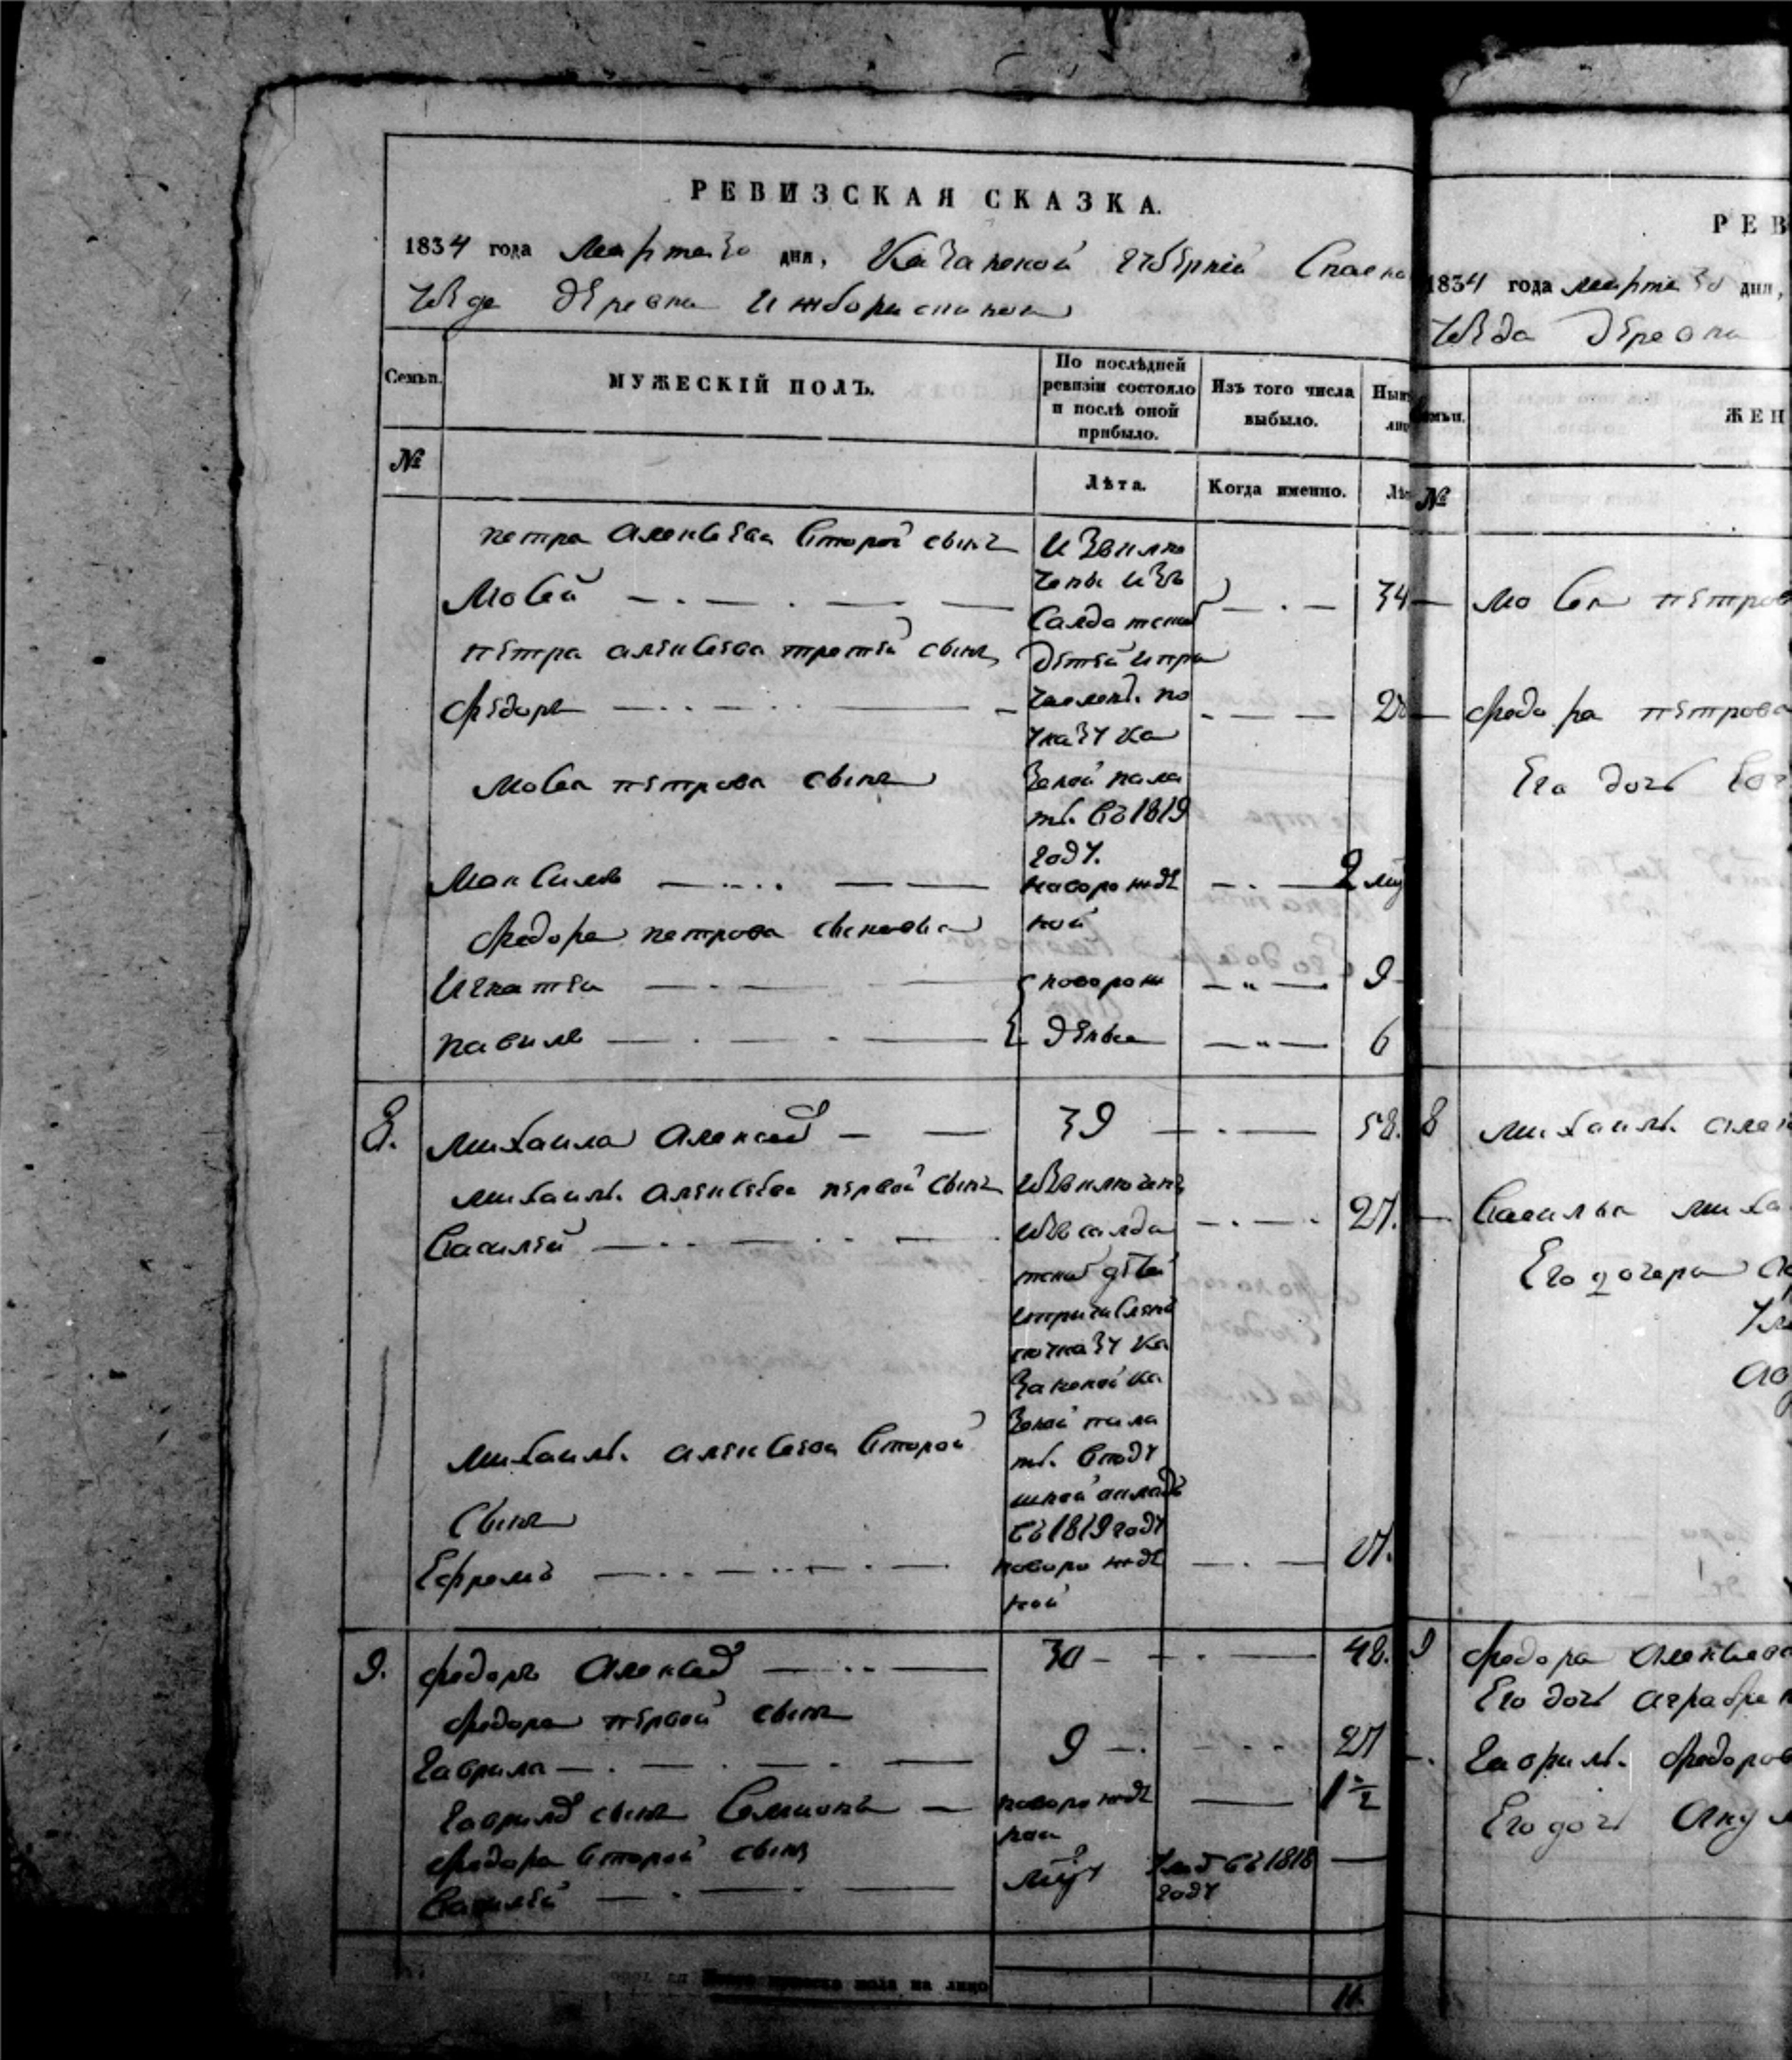 РЕВИЗСКАЯ СКАЗКА.
1834 года марта 30 дня, Казанской губернiи Спаско
уезда деревни
Семьи.
МУЖЕСКІЙ ПОЛЪ.
По послѣдней
ревизіи состояло
и послѣ оной
прибыло.
Изъ того числа
выбыло.
Нын
лиц
№
Лѣта.
Когда именно.
Лѣ
петра алексѣева второй сынъ
Мосей
34
изключены изъ салдатских детей и причислен. по указу казеной палаты. въ 1819 году.
петра алексеева третей сынъ
Федоръ
2
мосея петрова сынъ
Максимъ
новорожде
ной
2 м
федора петрова сыновья
Игнатей
новорож
9
павилъ
деные
6
8.
михаила алексеев
39
58.
михаилы алексеева первой сынъ
Василей
27.
изключенъ
изъ салда
тских детей
по указу ка
занской ка
зеной пала
ты. в поду
шной окладъ
въ 1819 году
михаилы алексеева второй
сынъ
Ефремъ
новорожде
ной
9.
федоръ алексеев
30
48.
федора первой сынъ
гаврила
9
27
гаврилы сынъ Семионъ
новорожде
1 ½
федора второй сынъ
Василей
въ 1818
году
мужеска пола на лицо
11.
РЕВ
1834 года марта 30 дня,
уезда деревни
Семьи.
ЖЕН
№
мосея петров
федора петрова
Его дочь
8
михаилы алек
Василья миха
Его дочери
9
федора алексеева
Его дочь аграфена
гаврилы федоров
Его дочь акул